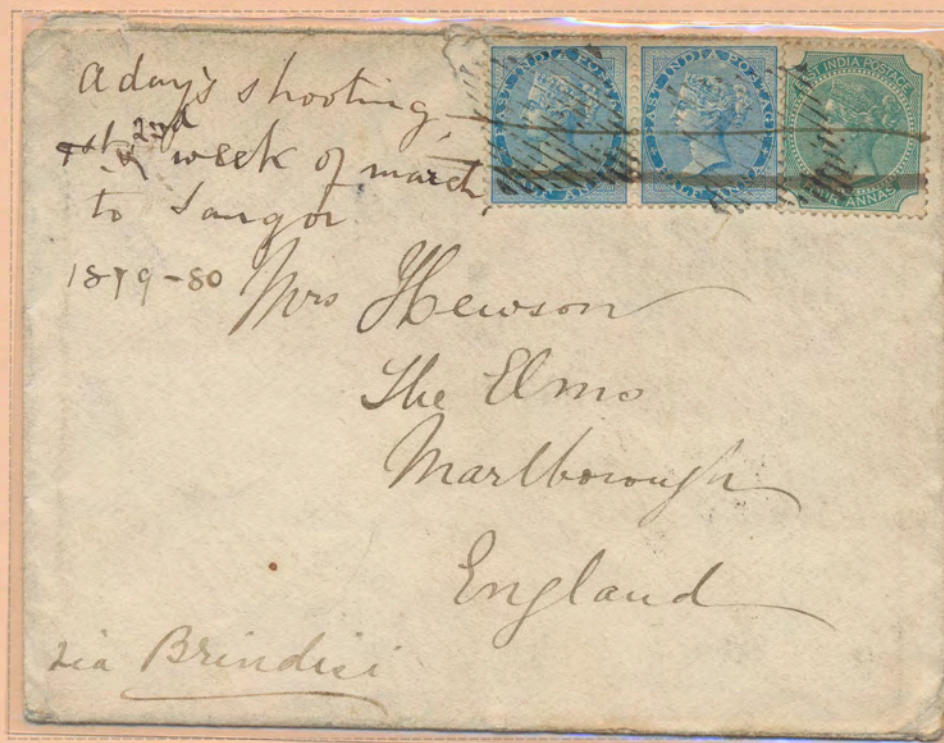 a day's shooting,
1st & 2nd week of march,
to Saugor
1879-80
EAST INDIA POSTAGE
HALF ANNA
EAST INDIA POSTAGE
HALF ANNA
EAST INDIA POSTAGE
FOUR ANNAS
Mrs Hewson
The Elms
Marlborough
England
via Brindisi